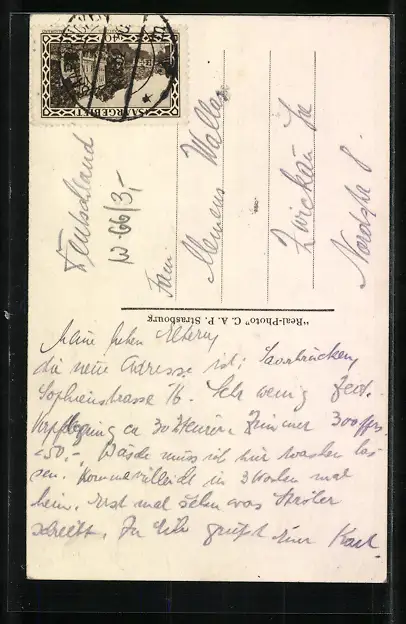 SAARGEBIET
40
Deutschland
Fam
Clemens
Zwickau Sa
Nordstr 8.
"Real-Photo" C. A. P. Strasbourg
Meine lieben Eltern,
die neue Adresse ist: Saarbrücken,
Sophienstrasse 16. Sehr wenig Zeit.
Verpflegung ca 30 Zimmer 300 ffrs.
=50,-. Wäsche muss ich hier waschen las-
sen. Komme vielleicht in 3 Wochen mal
heim. Erst mal sehen was
schreibt. In grüsst Euer Karl